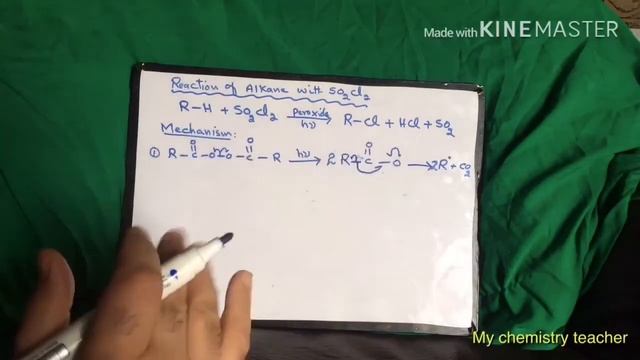 Made with KINEMASTER
Reaction of Alkane with SO2Cl2
R-H + SO2Cl2 peroxide hν → R-Cl + HCl + SO2
Mechanism:
① R-C(=O)-O-O-C(=O)-R hν → 2 R-C(=O)-O → 2R• + CO2
My chemistry teacher